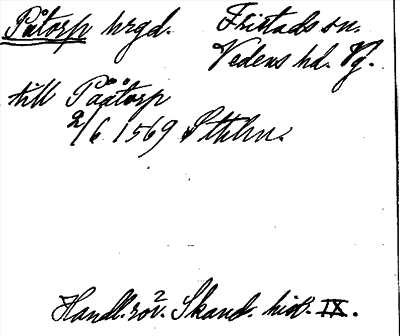 Påtorp hrgd. Fristads sn.
Vedens hd. Vg.
till Pååtorp
2/6 1569 Sthlm.
Handl. rör. Skand. hist. IX.